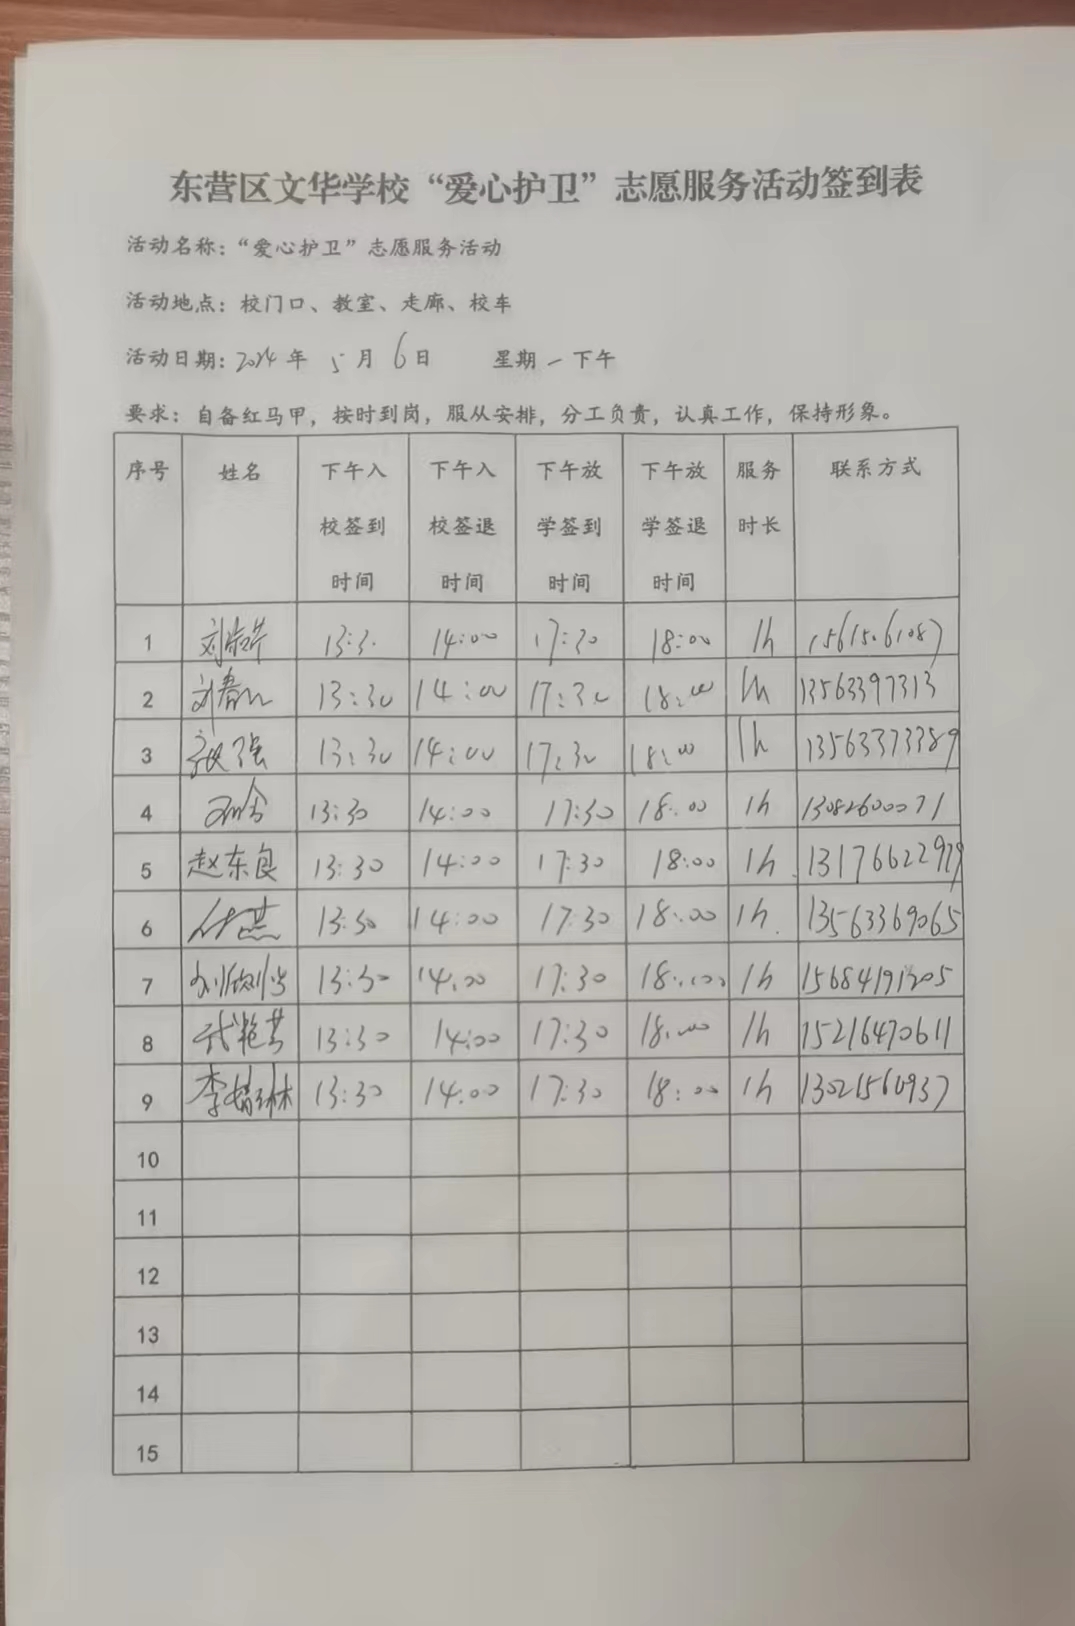 东营区文华学校“爱心护卫”志愿服务活动签到表
活动名称：“爱心护卫”志愿服务活动
活动地点：校门口、教室、走廊、校车
活动日期：2024年 5月 6日 星期一下午
要求：自备红马甲，按时到岗，服从安排，分工负责，认真工作，保持形象。
序号 姓名 下午入校签到时间 下午入校签退时间 下午放学签到时间 下午放学签退时间 服务时长 联系方式
1 13:3 14:00 17:30 18:00 1h 15615061087
2 13:30 14:00 17:30 18:00 1h 13563397313
3 13:30 14:00 17:30 18:00 1h 13563373389
4 13:30 14:00 17:30 18:00 1h 13082600071
5 赵东良 13:30 14:00 17:30 18:00 1h 13176622979
6 付燕 13:30 14:00 17:30 18:00 1h 13563369065
7 13:30 14:00 17:30 18:00 1h 15684191205
8 武艳芳 13:30 14:00 17:30 18:00 1h 15216470611
9 李婧琳 13:30 14:00 17:30 18:00 1h 13021560937
10
11
12
13
14
15